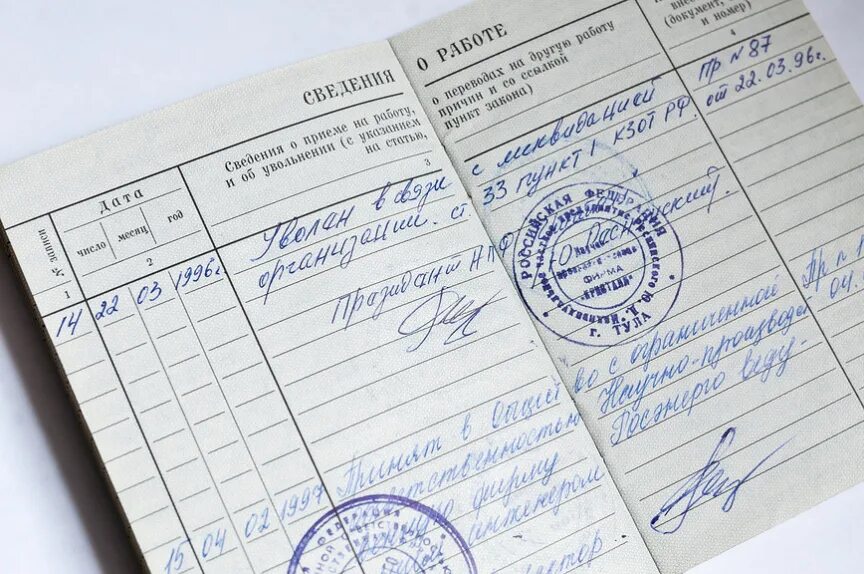 СВЕДЕНИЯ О РАБОТЕ
№ записи
Дата
число
месяц
год
Сведения о приеме на работу, о переводах на другую работу
и об увольнении (с указанием причин и со ссылкой
на статью, пункт закона)
(документ,
и номер)
1
2
3
4
14 22 03 1996г. Уволан в связи с ликвидацией Пр N 87
организации. ст. 33 пункт 1 КЗОТ РФ. от 22.03.96г.
Празидант НПФ
РОССИЙСКАЯ ФЕДЕРАЦИЯ
ФИРМА
"КРИСТАЛЛ"
г. ТУЛА
15 04 02 1997 Принят в Общество с ограниченной Пр п 1
ответственностью Научно-производ 04.
фирму Росэнерго веду-
инженером